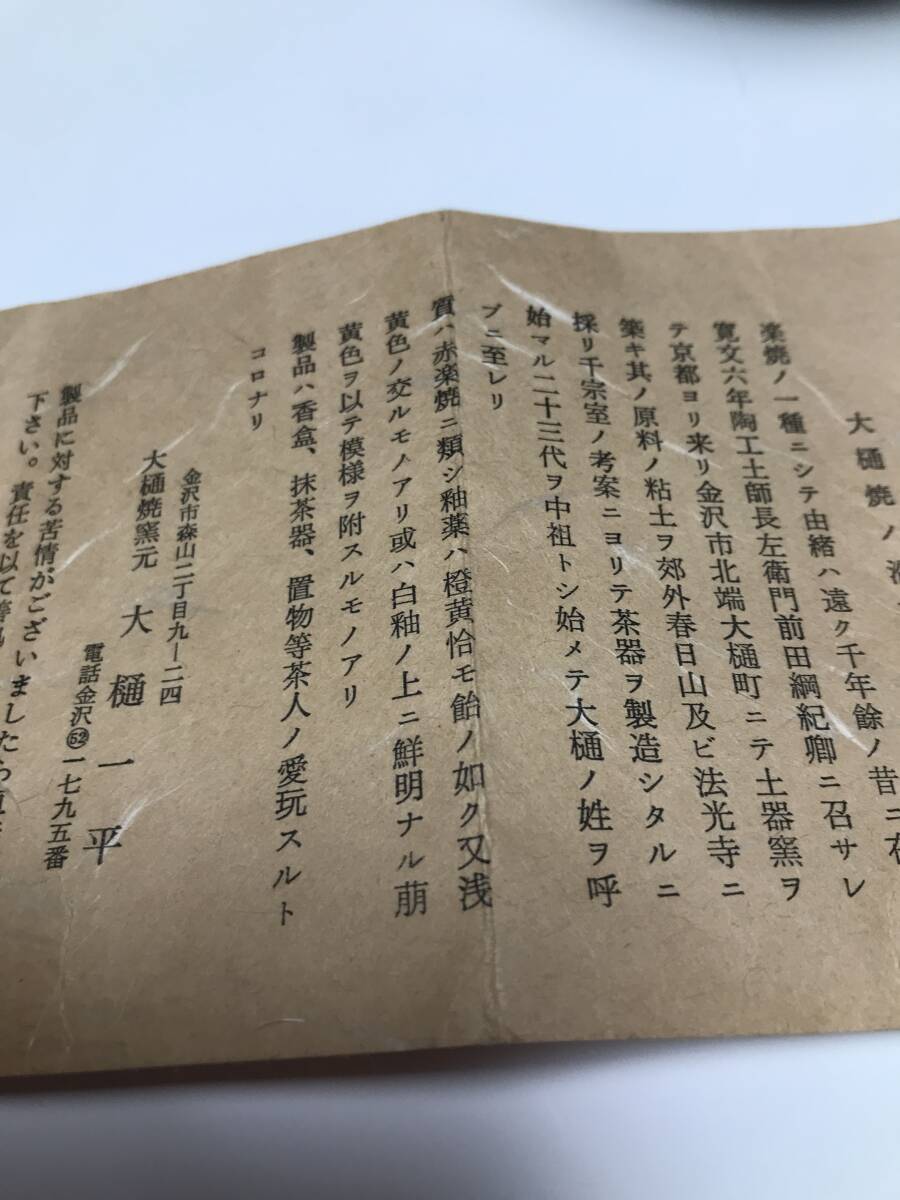 大樋焼ハ
楽焼ノ一種ニシテ由緒ハ遠ク千年餘ノ昔ニ在
寛文六年陶工土師長左衛門前田綱紀卿ニ召サレ
テ京都ヨリ来リ金沢市北端大樋町ニテ土器窯ヲ
築キ其ノ原料ノ粘土ヲ郊外春日山及ビ法光寺ニ
採リ千宗室ノ考案ニヨリテ茶器ヲ製造シタルニ
始マル二十三代ヲ中祖トシ始メテ大樋ノ姓ヲ呼
ブニ至レリ
質ハ赤楽焼ニ類シ釉薬ハ橙黄恰モ飴ノ如ク又浅
黄色ノ交ルモノアリ或ハ白釉ノ上ニ鮮明ナル萠
黄色ヲ以テ模様ヲ附スルモノアリ
製品ハ香盒、抹茶器、置物等茶人ノ愛玩スルト
コロナリ
金沢市森山二丁目九ー二四
大樋焼窯元 大樋一平
電話金沢㊷一七九五番
製品に対する苦情がございましたら
下さい。責任を以て